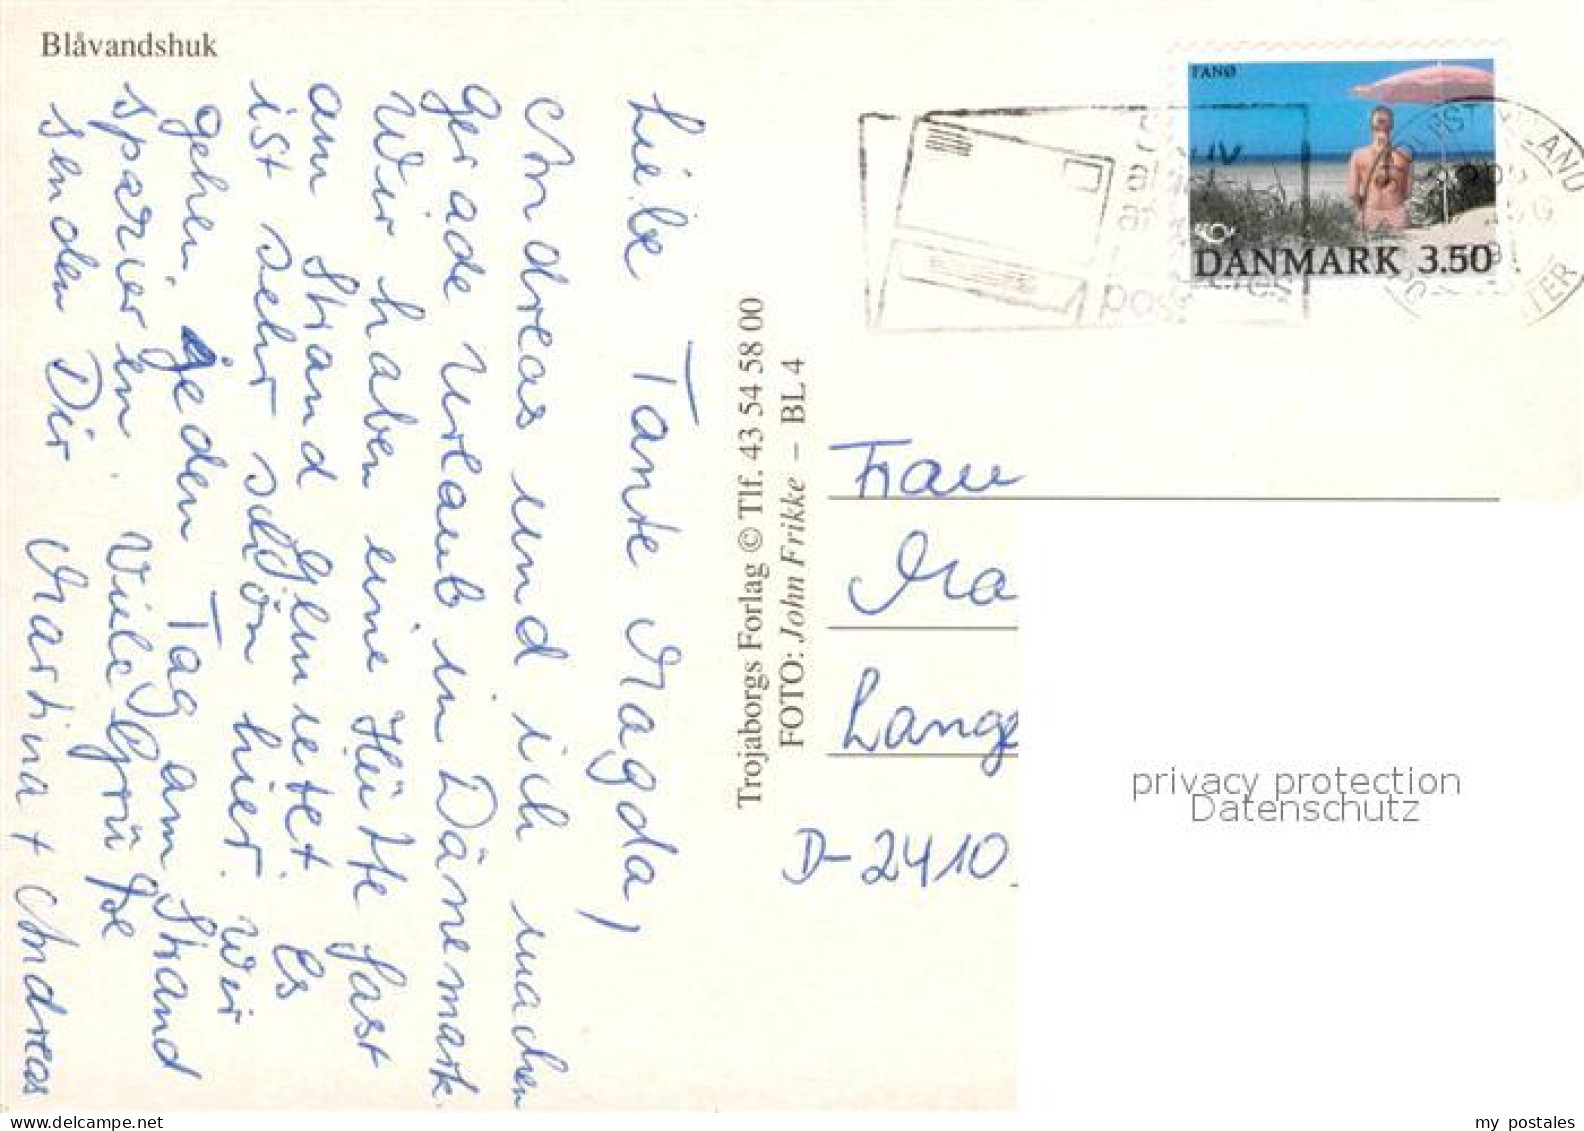 Blåvandshuk
Liebe Tante Magda,
Andreas und ich machen
gerade Urlaub in Dänemark.
Wir haben eine Hütte fast
am Strand gemietet. Es
ist sehr schön hier. Wir
gehen jeden Tag am Strand
spazieren. Viele Grüße
senden Dir Martina + Andreas
Trojaborgs Forlag © Tlf. 43 54 58 00
FOTO: John Frikke – BL 4
FANØ
DANMARK 3.50
Frau
Ma
Lange
D-2410
privacy protection
Datenschutz
my postales